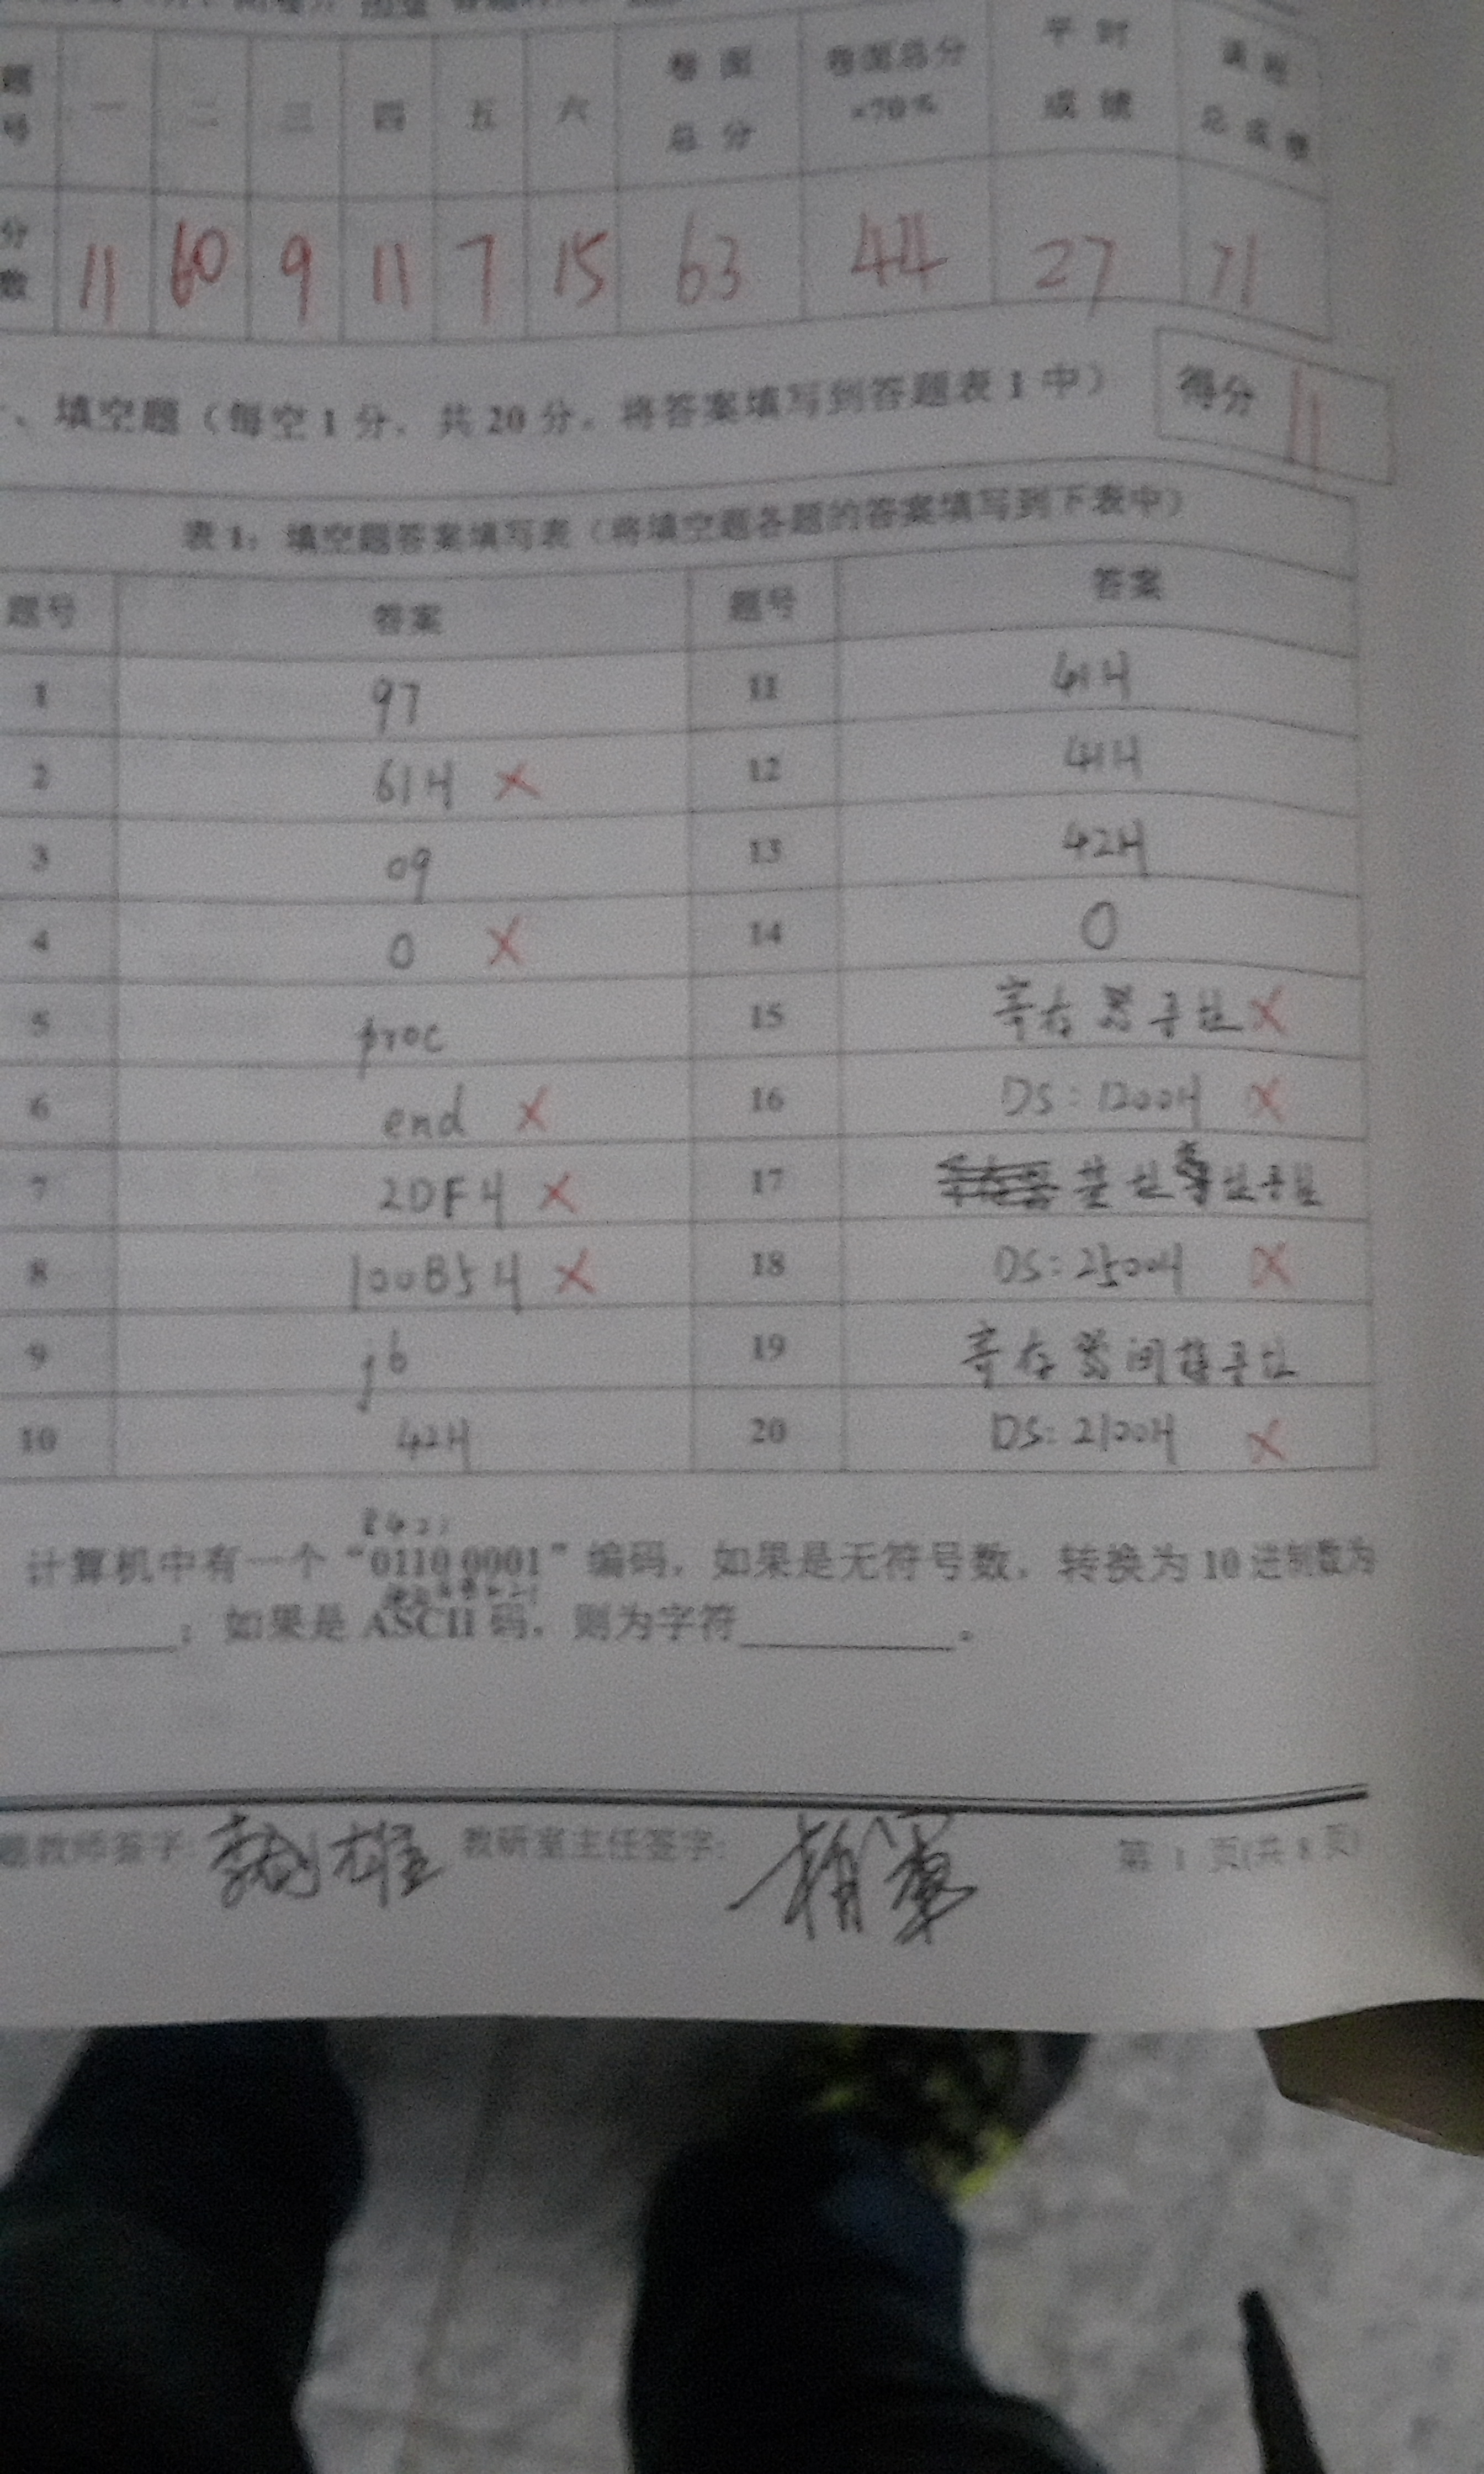 题号 一 二 三 四 五 六 卷面总分 卷面总分×70% 平时成绩 课程总成绩
分数 11 10 9 11 7 15 63 44 27 71
、填空题（每空1分，共20分。将答案填写到答题表1中） 得分 11
表1：填空题答案填写表（将填空题各题的答案填写到下表中）
题号 答案 题号 答案
1 97 11 61H
2 61H × 12 41H
3 09 13 42H
4 0 × 14 0
5 proc 15 寄存器寻址 ×
6 end × 16 DS:1200H ×
7 2DF4 × 17 基址变址寻址
8 100B5H × 18 DS:2500H ×
9 jb 19 寄存器间接寻址
10 42H 20 DS:2100H ×
8421
计算机中有一个“0110 0001”编码，如果是无符号数，转换为10进制数为
；如果是ASCII码，则为字符
题教师签字: 教研室主任签字: 第 1 页(共 8 页)